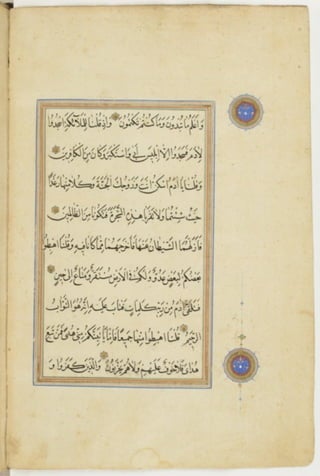 وَأَعْلَمُ مَا تُبْدُونَ وَمَا كُنْتُمْ تَكْتُمُونَ وَإِذْ قُلْنَا لِلْمَلَائِكَةِ اسْجُدُوا
لِآدَمَ فَسَجَدُوا إِلَّا إِبْلِيسَ أَبَى وَاسْتَكْبَرَ وَكَانَ مِنَ الْكَافِرِينَ
وَقُلْنَا يَا آدَمُ اسْكُنْ أَنْتَ وَزَوْجُكَ الْجَنَّةَ وَكُلَا مِنْهَا رَغَدًا
حَيْثُ شِئْتُمَا وَلَا تَقْرَبَا هَذِهِ الشَّجَرَةَ فَتَكُونَا مِنَ الظَّالِمِينَ
فَأَزَلَّهُمَا الشَّيْطَانُ عَنْهَا فَأَخْرَجَهُمَا مِمَّا كَانَا فِيهِ وَقُلْنَا اهْبِطُوا
بَعْضُكُمْ لِبَعْضٍ عَدُوٌّ وَلَكُمْ فِي الْأَرْضِ مُسْتَقَرٌّ وَمَتَاعٌ إِلَى حِينٍ
فَتَلَقَّى آدَمُ مِنْ رَبِّهِ كَلِمَاتٍ فَتَابَ عَلَيْهِ إِنَّهُ هُوَ التَّوَّابُ
الرَّحِيمُ قُلْنَا اهْبِطُوا مِنْهَا جَمِيعًا فَإِمَّا يَأْتِيَنَّكُمْ مِنِّي هُدًى فَمَنْ تَبِعَ
هُدَايَ فَلَا خَوْفٌ عَلَيْهِمْ وَلَا هُمْ يَحْزَنُونَ وَالَّذِينَ كَفَرُوا وَ